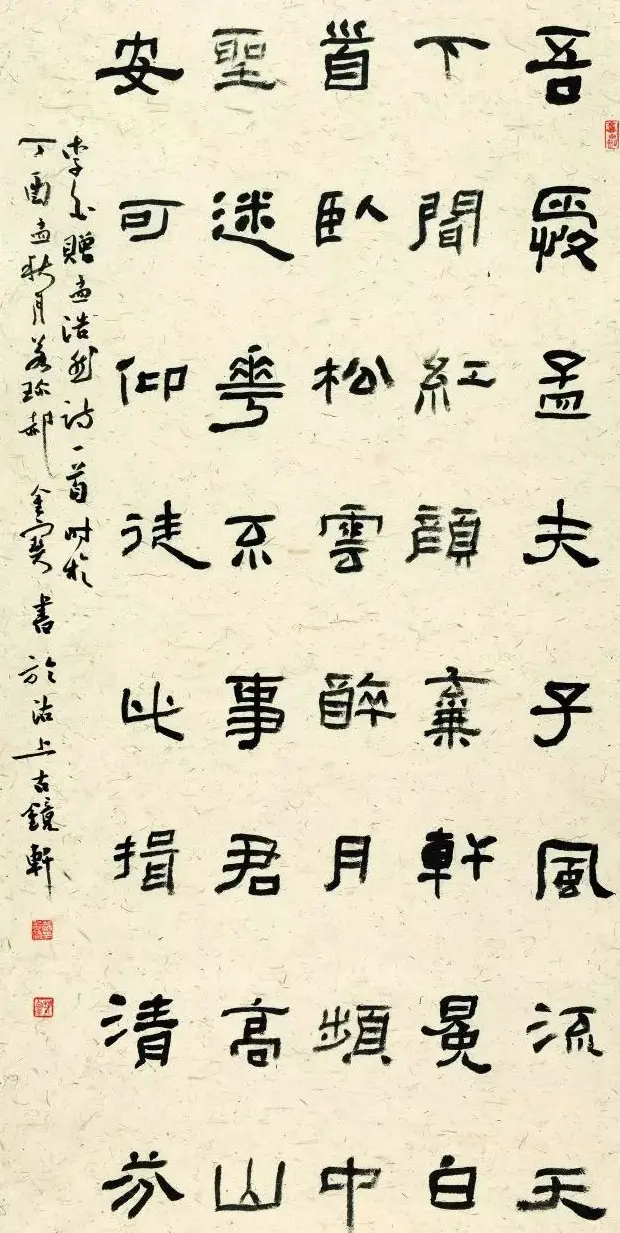 吾愛孟夫子風流天
下聞紅顏棄軒冕白
首臥松雲醉月頻中
聖迷華不事君高山
安可仰徒此揖清芬
李白贈孟浩然诗一首时於
丁酉孟秋月郝金寶書於沽上古鏡軒